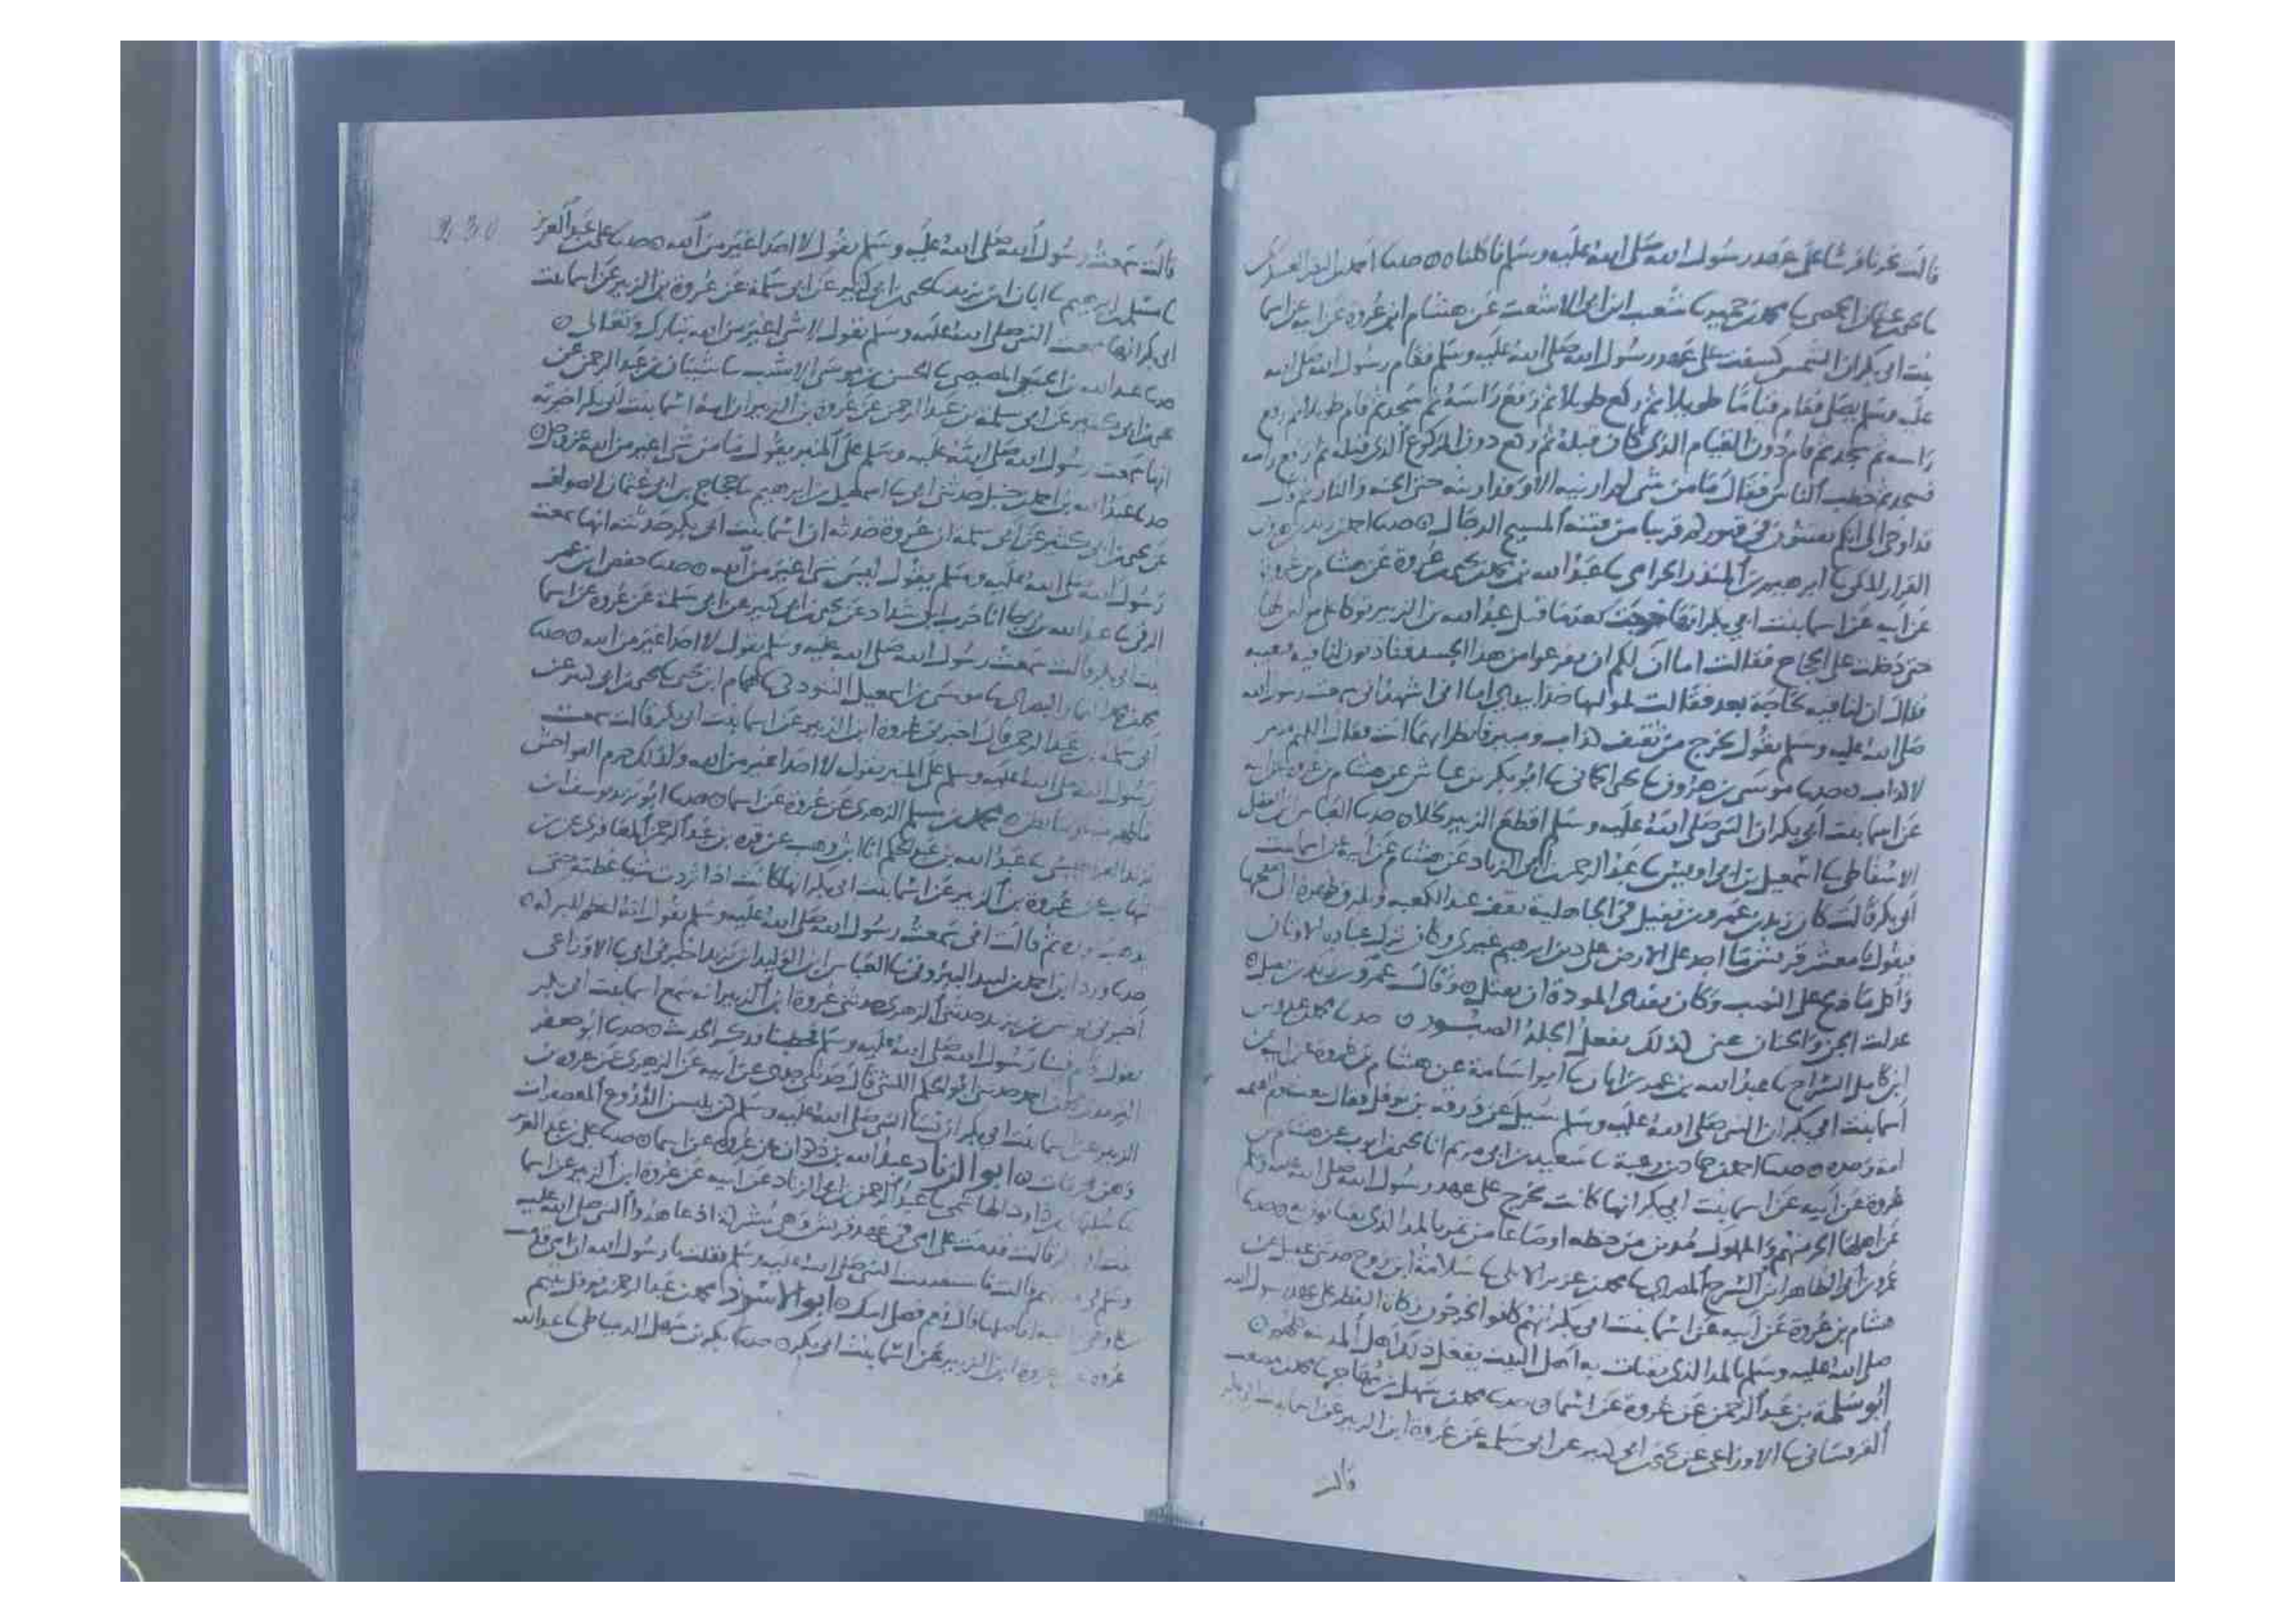 قالت نحرنا فرسا على عهد رسول الله صلى الله عليه وسلم فاكلناه حدثنا احمد بن
يحيى بن عثمان الحمصي ثنا محمد بن حمير ثنا شعيب ابن ابي الاشعث عن هشام ابن عروة عن ابيه عن اسما
بنت ابي بكر ان الشمس كسفت على عهد رسول الله صلى الله عليه وسلم فقام رسول الله صلى الله
عليه وسلم يصلي فقام قياما طويلا ثم ركع طويلا ثم رفع راسه ثم سجد ثم قام طويلا ثم ركع
راسه ثم سجد ثم قام دون القيام الذي كان قبله ثم ركع دون الركوع الذي قبله ثم رفع راسه
فسجد ثم خطب الناس فقال ما من شي لم اره الا وقد اريته حتى الجنة والنار ثم قال
قد اوحي الي انكم تفتنون في قبوركم قريبا من فتنة المسيح الدجال حدثنا احمد بن زيد بن هرون
القزاز المكي ثنا ابرهيم بن المنذر الحزامي ثنا عبد الله بن محمد بن يحيى بن عروة عن هشام بن عروة
عن ابيه عن اسما بنت ابي بكر انها خرجت بعدما قتل عبد الله بن الزبير
حتى دخلت على الحجاج فقالت اما ان لكم ان تفرغوا من هذا الجسد
صلى الله عليه وسلم يقول يخرج من ثقيف كذاب ومبير
حدثنا موسى بن هرون ثنا يحيى الحماني ثنا ابو بكر بن عياش عن هشام بن عروة عن ابيه
عن اسما بنت ابي بكر ان النبي صلى الله عليه وسلم اقطع الزبير نخلا حدثنا العباس بن الفضل
الاسفاطي ثنا اسمعيل بن ابي اويس ثنا عبد الرحمن بن ابي الزناد عن هشام عن ابيه عن اسما بنت
ابي بكر قالت كان زيد بن عمرو بن نفيل في الجاهلية يقف عند الكعبة
فيقول يا معشر قريش ما احد على الارض على دين ابرهيم غيري وكان ترك عبادة الاوثان
واكل ما ذبح على النصب وكان يفدي الموودة ان تقتل وقال عمرو بن نفيل
عزلت الجن والجنان عني كذلك يفعل الجلد الصبور حدثنا محمد بن عبدوس
ابن كامل السراج ثنا عبد الله بن عمر بن ابان ثنا ابو اسامة عن هشام بن عروة عن ابيه عن
اسما بنت ابي بكر ان النبي صلى الله عليه وسلم سئل عن ورقة بن نوفل فقال يبعث يوم القيمة
امة وحده حدثنا احمد بن حماد بن زغبة ثنا سعيد بن ابي مريم انا يحيى بن ايوب عن هشام بن
عروة عن ابيه عن اسما بنت ابي بكر انها كانت تخرج على عهد رسول الله صلى الله عليه وسلم
عن اهلها الحر منهم والمملوك مدين من حنطة او صاعا من تمر بالمد الذي
عمرو بن ابي الطاهر ابن السرح المصري ثنا محمد بن عزيز الايلي ثنا سلامة ابن روح حدثني عقيل عن
هشام بن عروة عن ابيه عن اسما بنت ابي بكر انهم كانوا يخرجون زكاة الفطر على عهد رسول الله
صلى الله عليه وسلم بالمد الذي يقتات به اهل البيت يفعل ذلك اهل المدينة كلهم
ابو سلمة بن عبد الرحمن عن عروة عن اسما حدثنا محمد بن سهل بن مهاجر ثنا محمد بن مصعب
القرقساني ثنا الاوزاعي عن يحيى بن ابي كثير عن ابي سلمة عن عروة ابن الزبير عن اسما بنت ابي بكر
قالت
230
قالت سمعت رسول الله صلى الله عليه وسلم يقول لا احد اغير من الله حدثنا علي بن عبد العزيز
ثنا مسلم بن ابرهيم ثنا ابان ابن يزيد ثنا يحيى بن ابي كثير عن ابي سلمة عن عروة بن الزبير عن اسما بنت
ابي بكر انها سمعت النبي صلى الله عليه وسلم يقول لا شي اغير من الله تبارك وتعالى
حدثنا عبد الله المصيصي ثنا الحسن بن موسى الاشيب ثنا شيبان بن عبد الرحمن عن
يحيى بن ابي كثير عن ابي سلمة بن عبد الرحمن عن عروة بن الزبير ان امه اسما بنت ابي بكر اخبرته
انها سمعت رسول الله صلى الله عليه وسلم على المنبر يقول ما من شي اغير من الله عز وجل
حدثنا عبد الله بن احمد بن حنبل حدثني ابي ثنا اسمعيل بن ابرهيم ثنا حجاج بن ابي عثمان الصواف
عن يحيى بن ابي كثير عن ابي سلمة ان عروة حدثه ان اسما بنت ابي بكر حدثته انها سمعت
رسول الله صلى الله عليه وسلم يقول ليس شي اغير من الله حدثنا حفص ابن عمر
الرقي ثنا عبد الله بن رجا انا حرب بن شداد عن يحيى بن ابي كثير عن ابي سلمة عن عروة عن اسما
بنت ابي بكر قالت سمعت رسول الله صلى الله عليه وسلم يقول لا احد اغير من الله حدثنا
محمد بن البصري ثنا موسى بن اسمعيل التبوذكي ثنا همام ابن يحيى ثنا يحيى بن ابي كثير عن
ابي سلمة بن عبد الرحمن قال اخبرني عروة ابن الزبير عن اسما بنت ابي بكر قالت سمعت
رسول الله صلى الله عليه وسلم على المنبر يقول لا احد اغير من الله ولذلك حرم الفواحش
ما ظهر منها وما بطن محمد بن مسلم الزهري عن عروة عن اسما حدثنا ابو يزيد يوسف ابن
يزيد القراطيسي ثنا عبد الله بن عبد الحكم انا ابن وهب عن قرة بن عبد الرحمن المعافري عن ابن
شهاب عن عروة بن الزبير عن اسما بنت ابي بكر انها كانت اذا ثردت شيا غطته حتى
يذهب فوره ثم قالت اني سمعت رسول الله صلى الله عليه وسلم يقول انه اعظم للبركة
حدثنا ورد ابن احمد بن لبيد البيروتي ثنا العباس ابن الوليد ابن مزيد اخبرني ابي ثنا الاوزاعي
اخبرني يونس بن يزيد حدثني الزهري حدثني عروة ابن الزبير انه سمع اسما بنت ابي بكر
تقول قام فينا رسول الله صلى الله عليه وسلم فخطبنا فذكر الحديث حدثنا ابو جعفر
الترمذي محمد بن احمد حدثني ابو الحكم الليثي قال حدثني جدي عن ابيه عن الزهري عن عروة بن
الزبير عن اسما بنت ابي بكر ان نسا النبي صلى الله عليه وسلم كن يلبسن الدروع المعصفرات
وهن محرمات ابو الزناد عبد الله بن ذكوان عن عروة عن اسما حدثنا علي بن عبد العزيز
ثنا سليمان بن داود الهاشمي ثنا عبد الرحمن بن ابي الزناد عن ابيه عن عروة ابن الزبير عن اسما
بنت ابي بكر قالت قدمت علي امي في عهد قريش وهي مشركة اذ عاهدوا النبي صلى الله عليه
وسلم قالت فاستفتيت النبي صلى الله عليه وسلم فقلت يا رسول الله ان امي قدمت
علي وهي راغبة افاصلها قال نعم فصلي امك ابو الاسود محمد بن عبد الرحمن بن نوفل يتيم
عروة عن عروة ابن الزبير عن اسما بنت ابي بكر حدثنا بكر بن سهل الدمياطي ثنا عبد الله